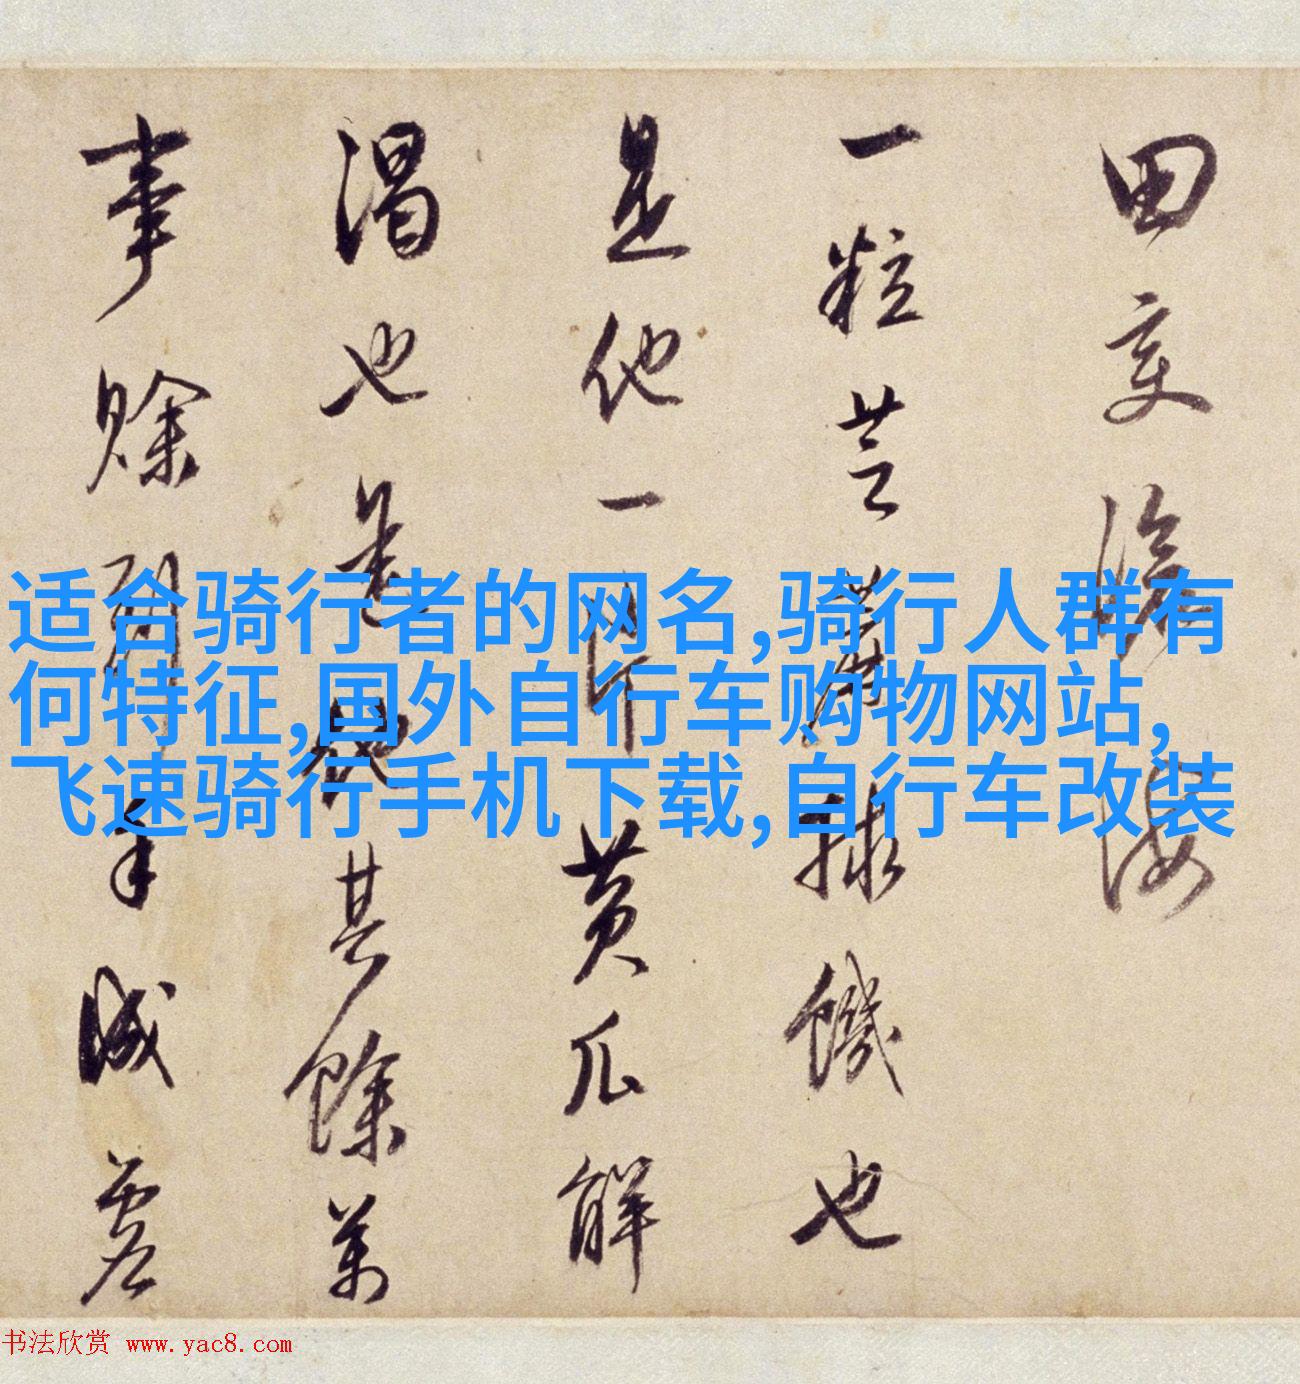 田变沧海
一粒芝麻救饑也
是他一片黄瓜解
渴也是他其餘万
事赊到年减卷
适合骑行者的网名,骑行人群有
何特征,国外自行车购物网站,
飞速骑行手机下载,自行车改装
书法欣赏 www.yac8.com